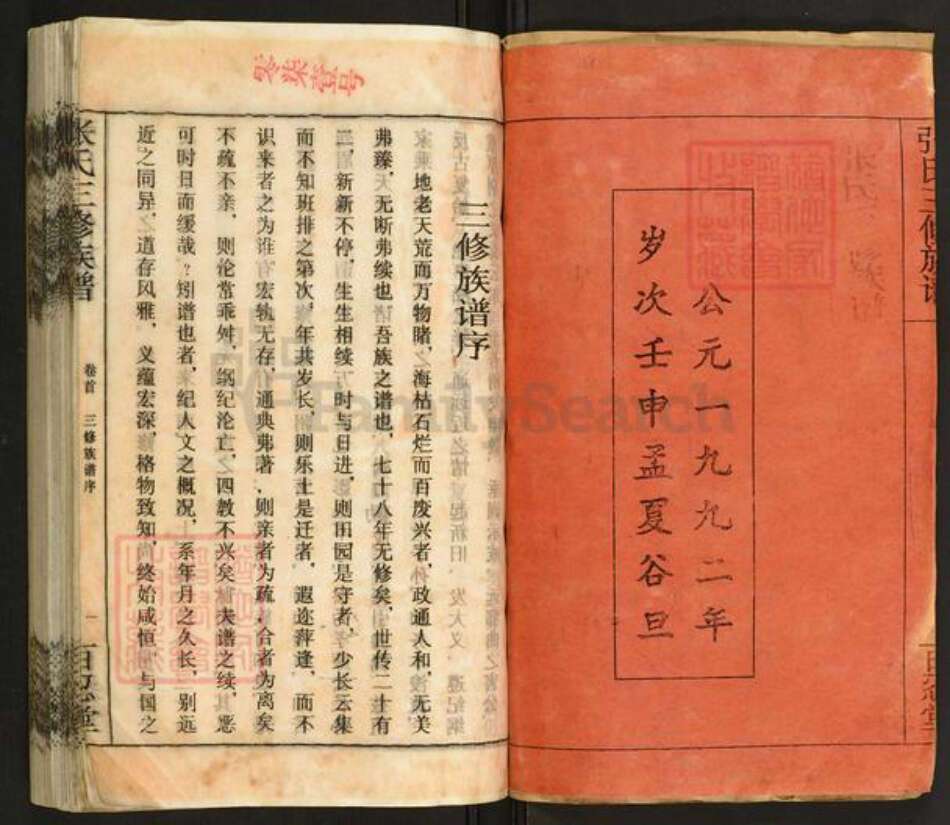 公元一九九二年
岁次壬申孟夏谷旦
零柒壹号
三修族谱序
地老天荒而万物睹,海枯石烂而百废兴者,政通人和,无美
弗臻,天无断弗续也,吾族之谱也,七十八年无修矣,世传二十有
三,新新不停,生生相续,时与日进,则田园是守者,少长云集
而不知班排之第次,年共岁长,则乐土是迁者,遐迩萍逢,而不
识来者之为谁,宏轨无存,通典弗著,则亲者为疏,合者为离矣
不疏不亲,则沦常乖舛,纲纪沦亡,四教不兴矣,夫谱之续,恶
可时日而缓哉?矧谱也者,纪人文之概况,系年月之久长,别远
近之同异,道存风雅,义蕴宏深,格物致知,终始咸恒,与国之
张氏三修族谱
卷首 三修族谱序
一
百忍堂
张氏三修族谱
百忍堂
FamilySearch